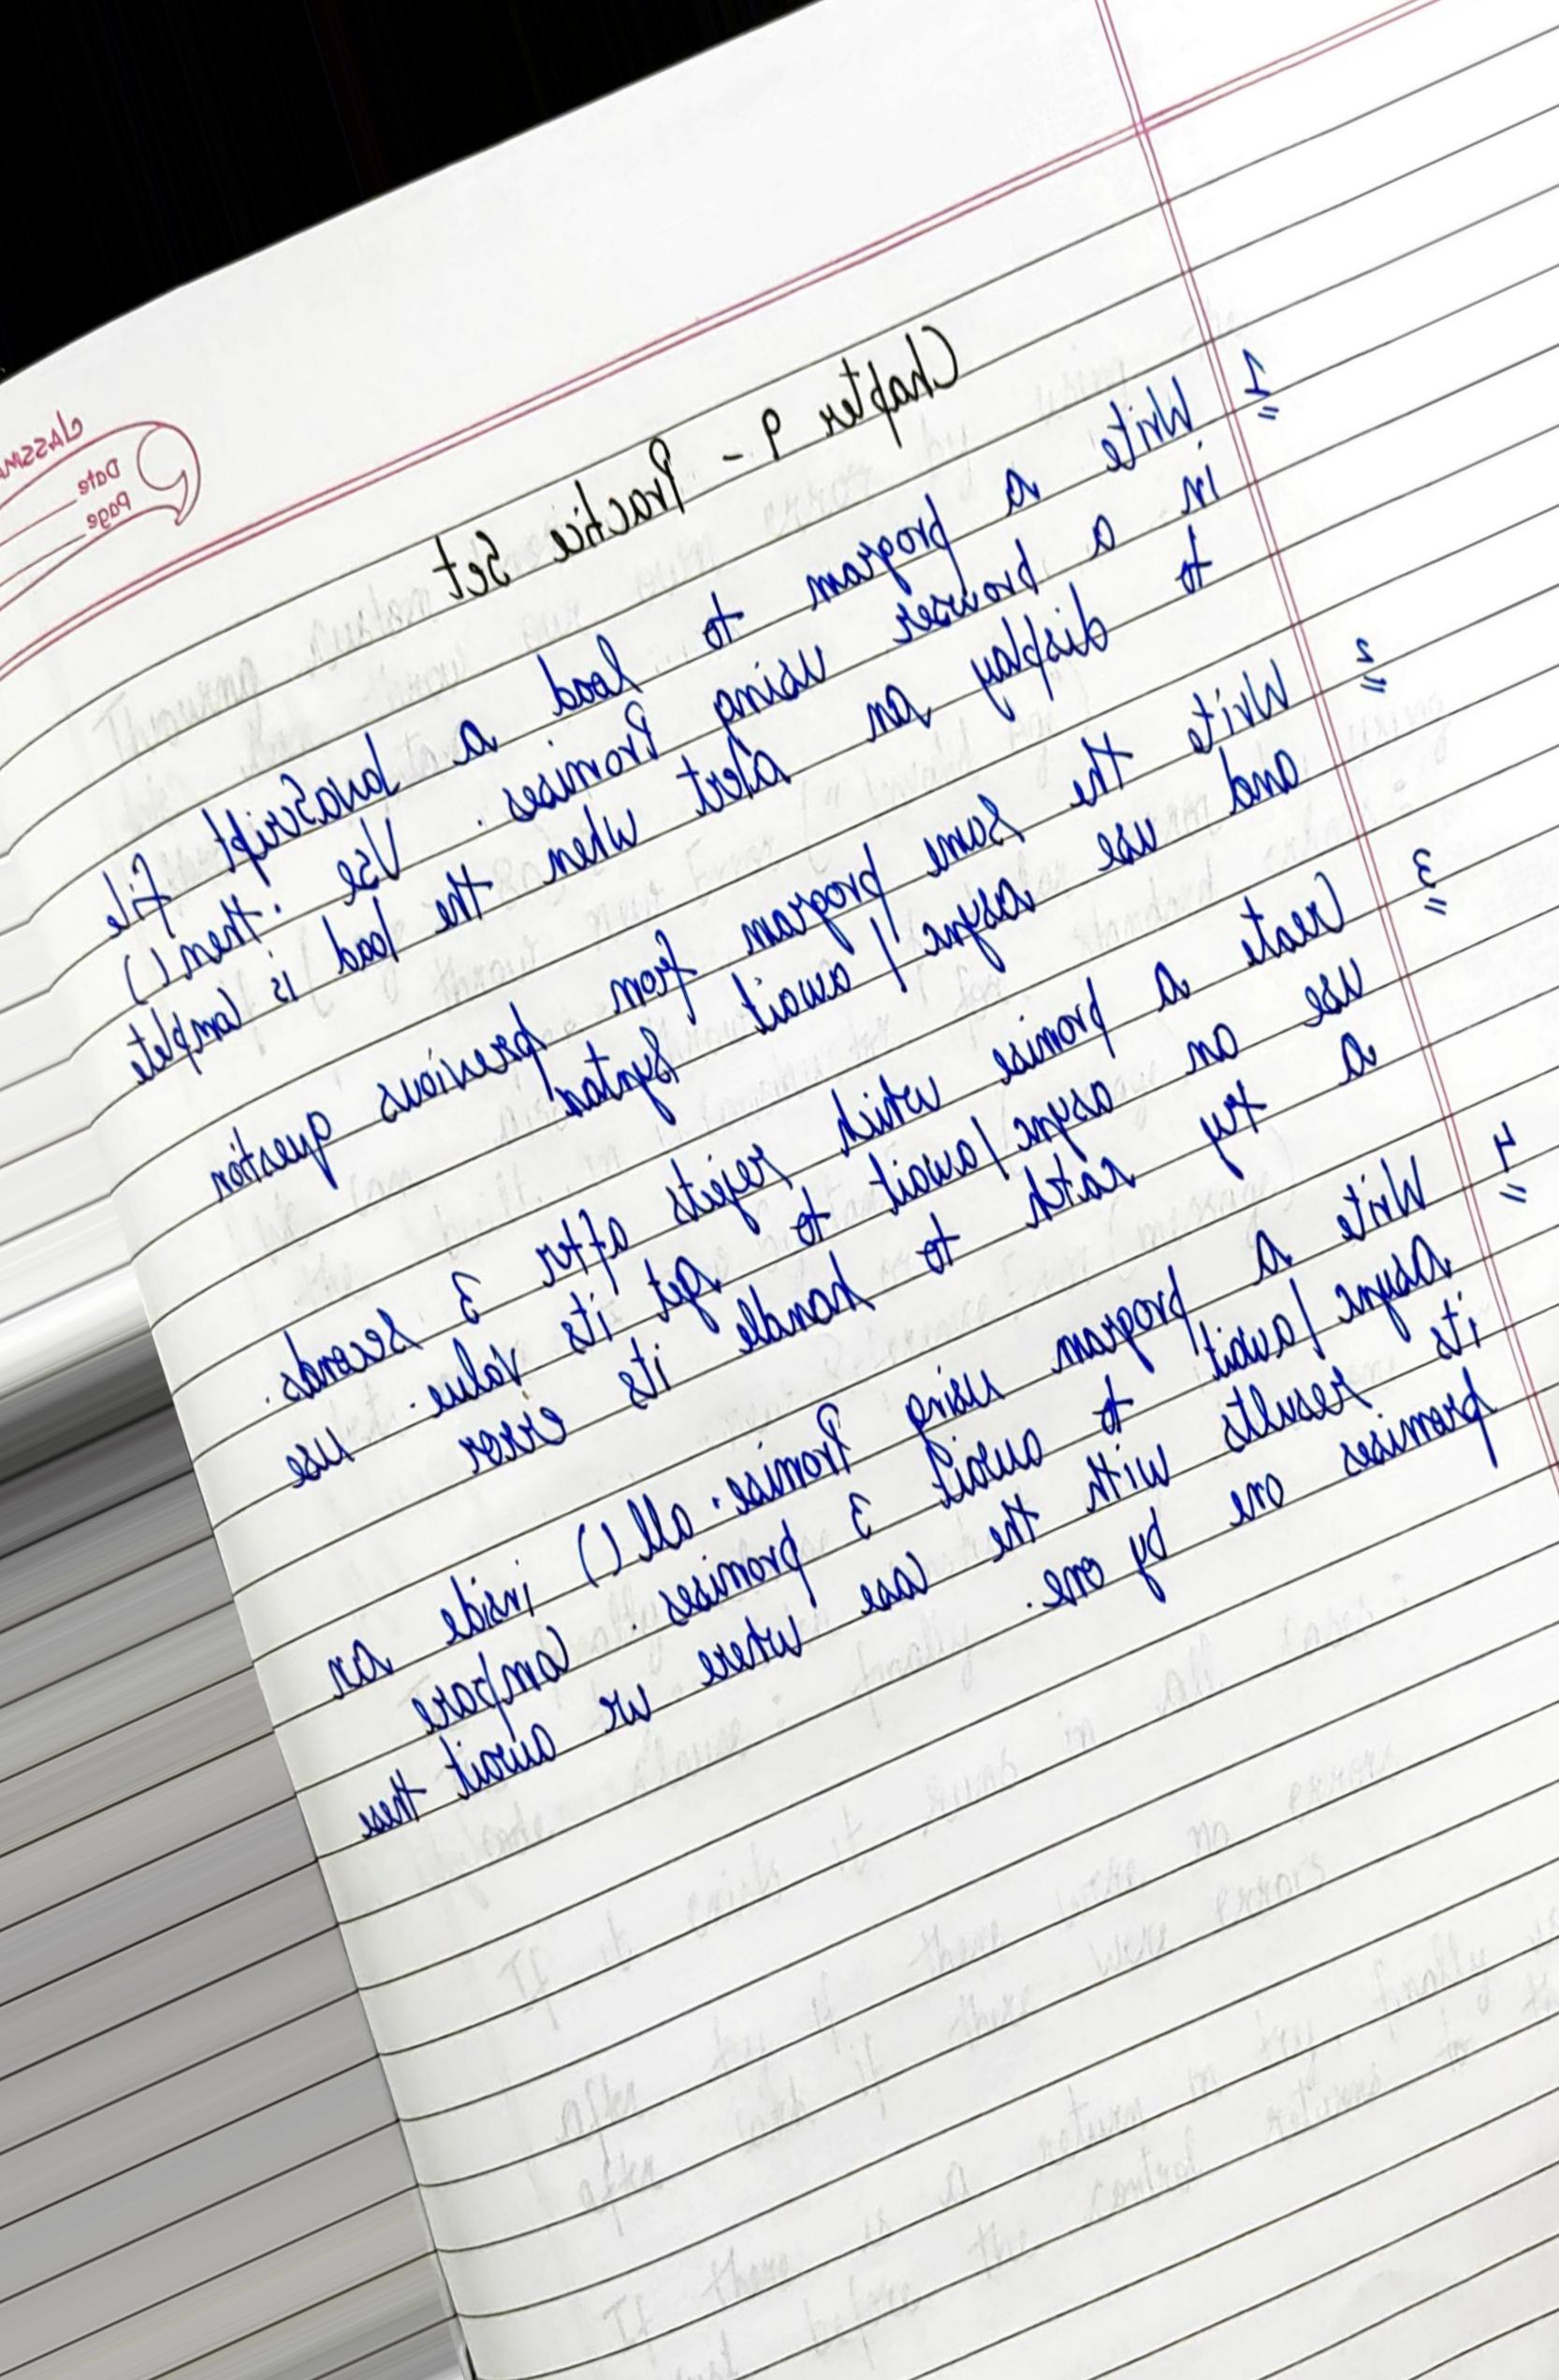 classma
Date
Page
Chapter 9 - Practice Set
1 Write a program to load a JavaScript file
in a browser using Promises. Use .then()
to display an alert when the load is complete
2 Write the same program from previous question
and use async/await Syntax.
3 Create a promise which rejects after 3 seconds.
use an async/await to get its value. use
a try catch to handle its error
4 Write a program using Promise.all() inside an
async/await to await 3 promises. Compare
its results with the case where we await these
promises one by one.